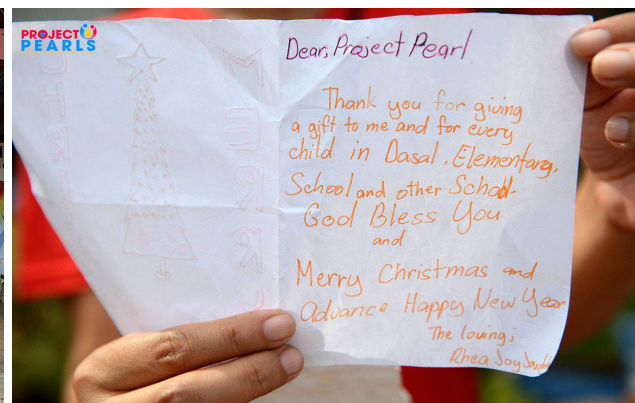 PROJECT
PEARLS
Dear, Project Pearl
Thank you for giving
a gift to me and for every
child in Dasal, Elementary,
School and other School.
God Bless You
and
Merry Christmas and
Advance Happy New Year
The loving;
Rhea Joy